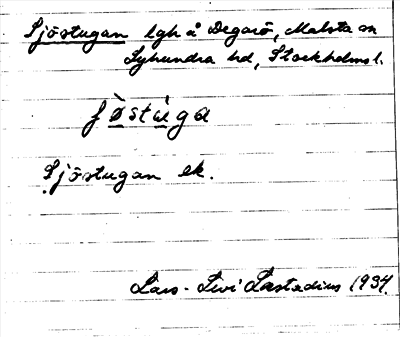 Sjöstugan lgh å Degarö, Malsta sn
Lyhundra hd, Stockholms l.
fø̀stùga
Sjöstugan ek.
Lars-Levi Læstadius 1934.